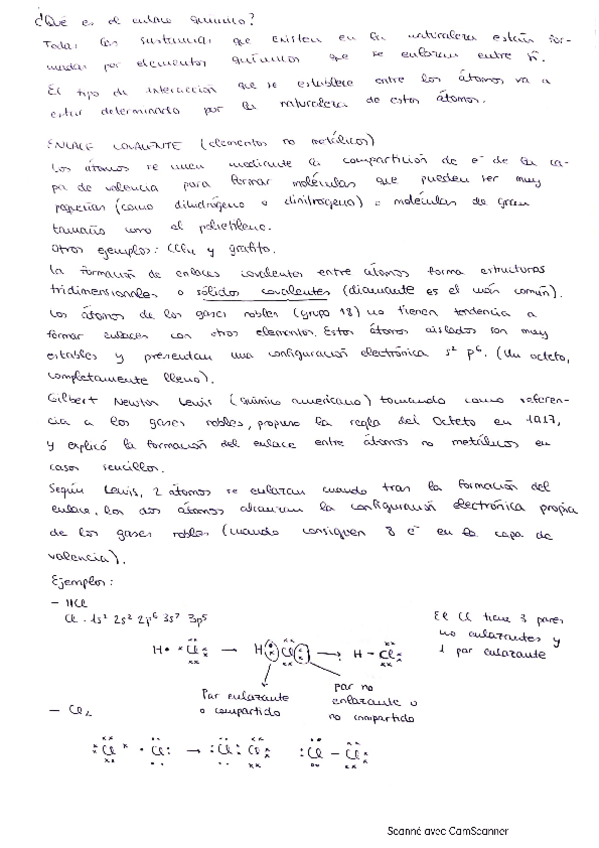 ¿Qué es el enlace químico?
Todas las sustancias que existen en la naturaleza están for-
madas por elementos químicos que se enlazan entre sí.
El tipo de interacción que se establece entre los átomos va a
estar determinado por la naturaleza de estos átomos.
ENLACE COVALENTE (elementos no metálicos)
Los átomos se unen mediante la compartición de e⁻ de la ca-
pa de valencia para formar moléculas que pueden ser muy
pequeñas (como dihidrógeno o dinitrógeno) o moléculas de gran
tamaño como el polietileno.
Otros ejemplos: CCl₄ y grafito.
La formación de enlaces covalentes entre átomos forma estructuras
tridimensionales o sólidos covalentes (diamante es el más común).
Los átomos de los gases nobles (grupo 18) no tienen tendencia a
formar enlaces con otros elementos. Estos átomos aislados son muy
estables y presentan una configuración electrónica s² p⁶. (Un octeto,
completamente lleno).
Gilbert Newton Lewis (químico americano) tomando como referen-
cia a los gases nobles, propuso la regla del Octeto en 1917,
y explicó la formación del enlace entre átomos no metálicos en
casos sencillos.
Según Lewis, 2 átomos se enlazan cuando tras la formación del
enlace, los dos átomos alcanzan la configuración electrónica propia
de los gases nobles (cuando consiguen 8 e⁻ en la capa de
valencia).
Ejemplos:
– HCl
Cl. 1s² 2s² 2p⁶ 3s² 3p⁵
El Cl tiene 3 pares
no enlazantes y
1 par enlazante
H• Cl → H Cl → H – Cl
Par enlazante
o compartido
par no
enlazante o
no compartido
– Cl₂
Cl • Cl → Cl Cl Cl – Cl
Scanné avec CamScanner